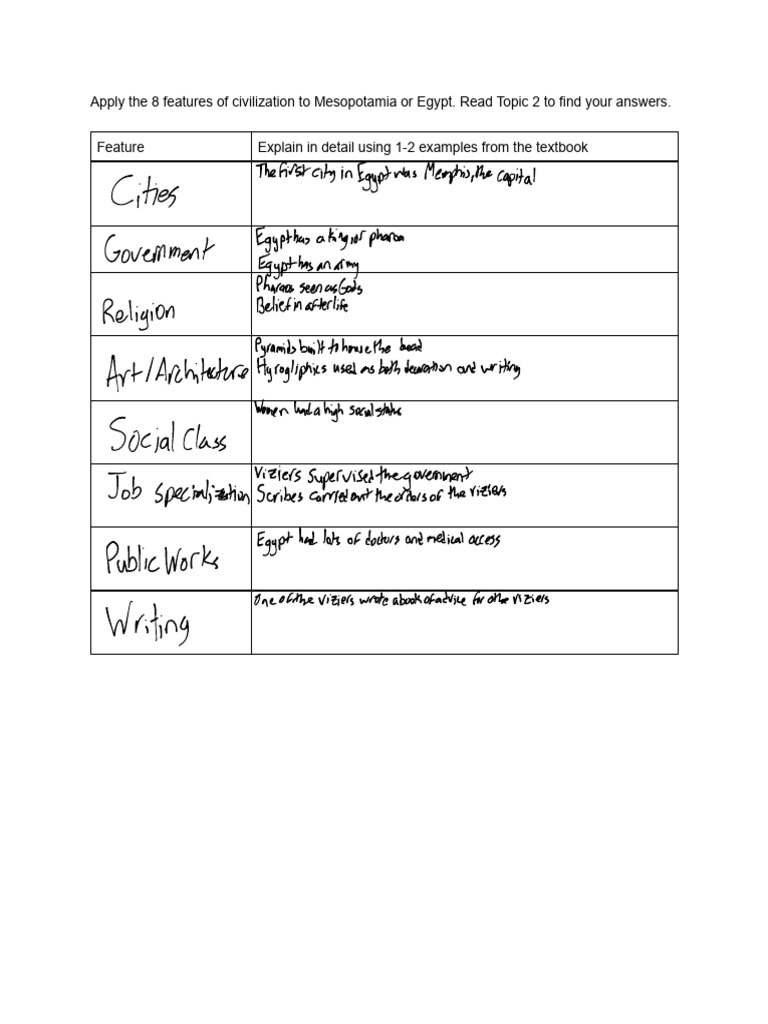 Apply the 8 features of civilization to Mesopotamia or Egypt. Read Topic 2 to find your answers.
Feature
Explain in detail using 1-2 examples from the textbook
Cities
The first city in Egypt was Memphis, the capital
Government
Egypt has a king or pharoa
Egypt has an army
Religion
Pharaos seen as Gods
Belief in afterlife
Art/Architecture
Pyramids built to house the dead
Hyrogliphics used as both decoration and writing
Social Class
Women had a high social status
Job specialization
Viziers supervised the government
Scribes carried out the orders of the viziers
Public Works
Egypt had lots of doctors and medical access
Writing
One of the viziers wrote a book of advice for othe viziers